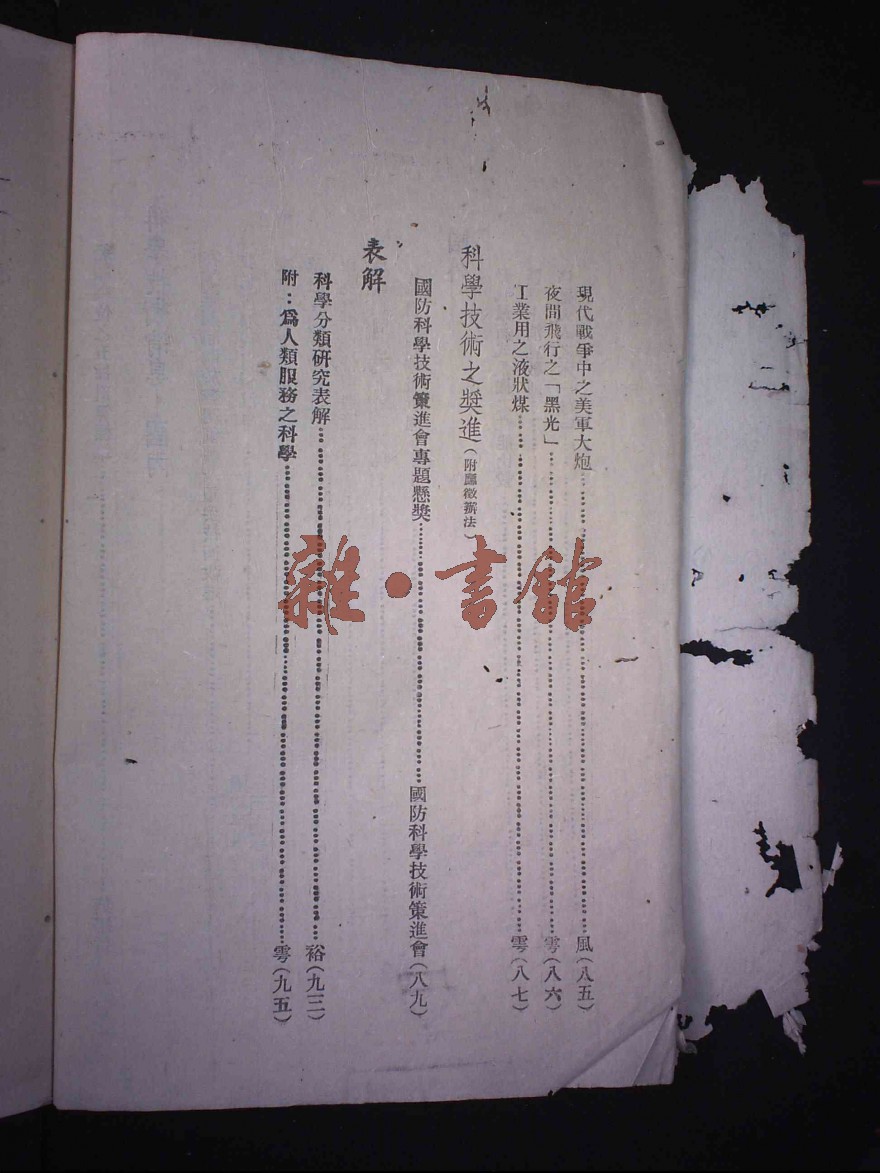 現代戰爭中之美軍大炮……風(八五)
夜間飛行之「黑光」……雩(八六)
工業用之液狀煤……雩(八七)
科學技術之獎進(附應徵辦法)
國防科學技術策進會專題懸獎……國防科學技術策進會(八九)
表解
科學分類研究表解……裕(九三)
附:爲人類服務之科學……雩(九五)
雜·書館